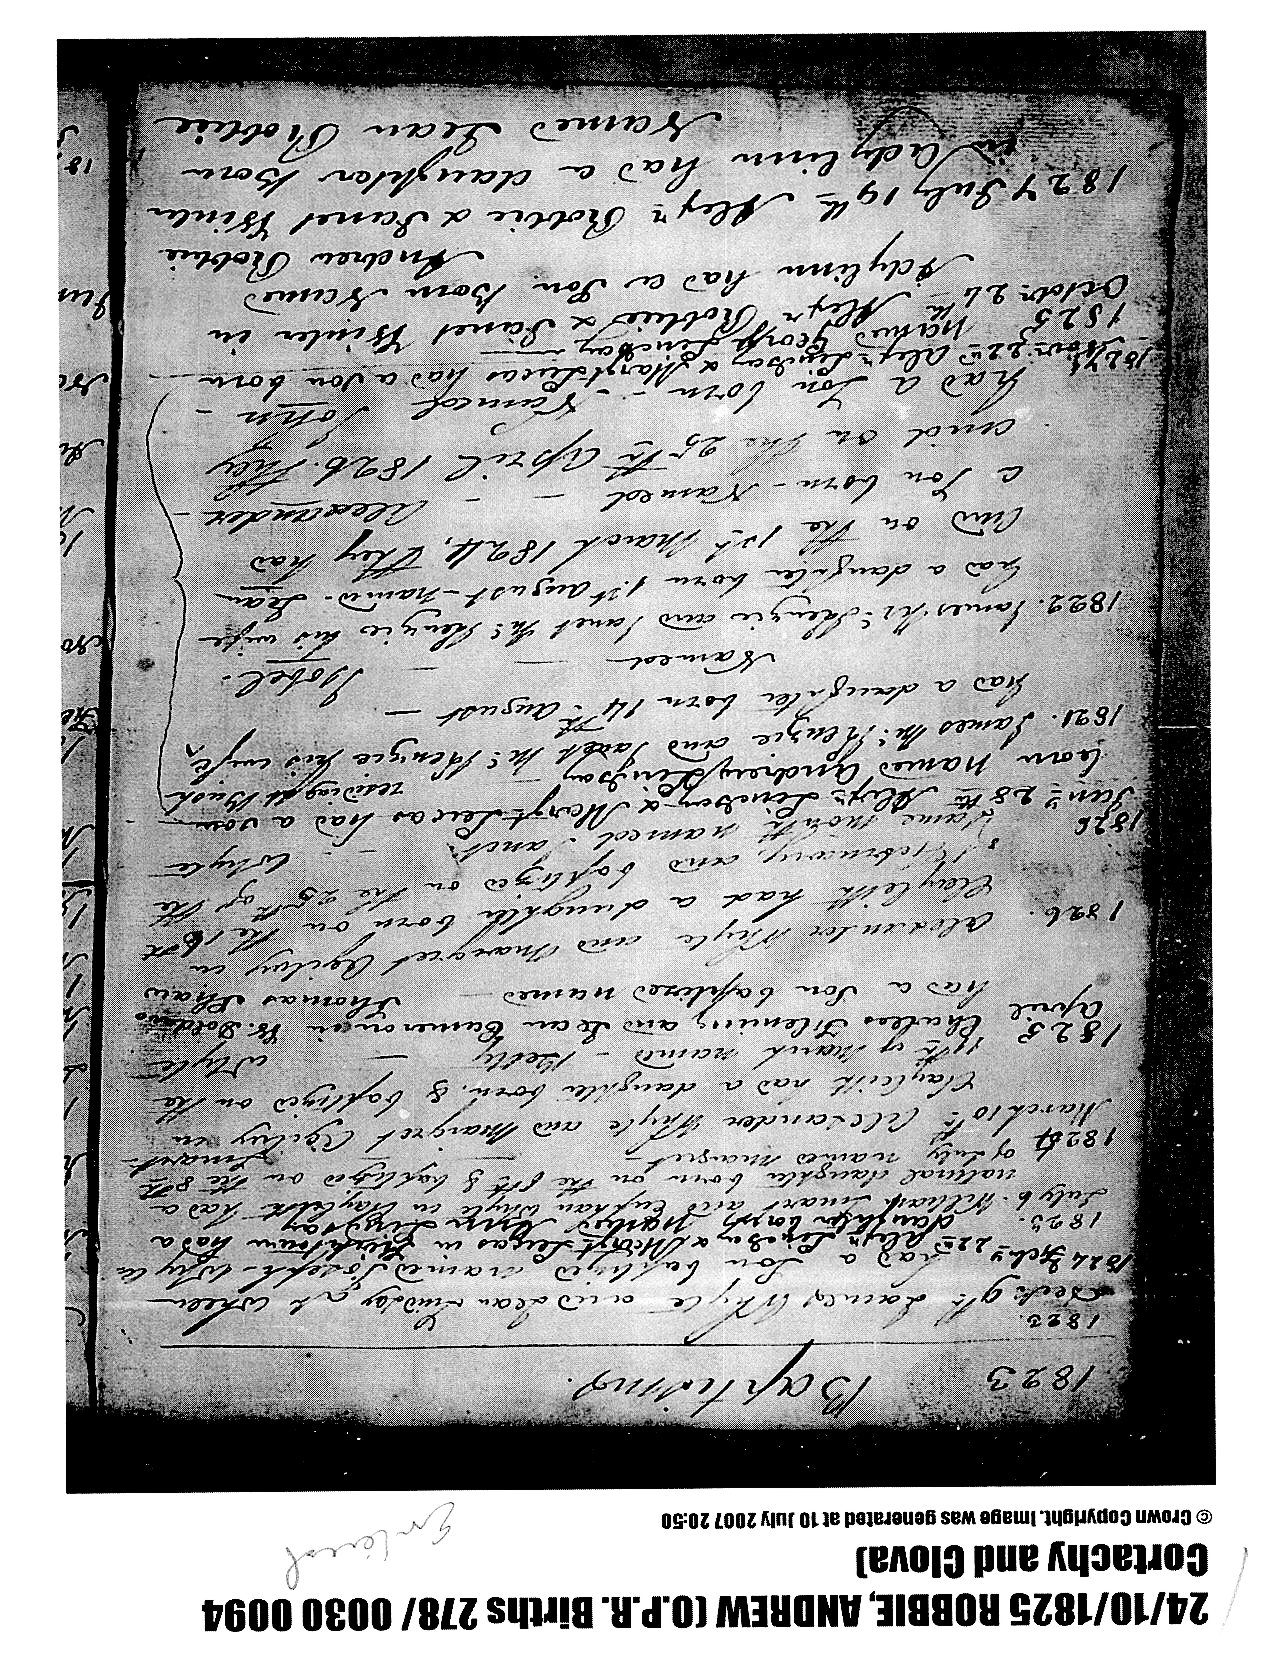 24/10/1825 ROBBIE, ANDREW (O.P.R. Births 278/ 0030 0094
Cortachy and Clova)
© Crown Copyright. Image was generated at 10 July 2007 20:50
1823 Baptisms.
1823.
9th James Whyte and Jean Lindsay at Wheen
had a Son baptized named Joseph - Whyte
1824 Feby 22d Alexr Lindsay & Margt Lucas in Kirktown had a
daughter born named Ann Lindsay
1823.
July 6. William Smart and Euphan Whyte in Clayleith had a
natural daughter born on the 6th & baptized on the 8th
of July named Margret Smart
1824
March 10th Alexander Whyte and Margret Ogilvy in
Clayleith had a daughter born, & baptized on the
11th of March named - Betty - Whyte
1825 Charles Fleming and Jean Cameronian
April had a Son baptized named - Thomas Shaw
1826. Alexander Whyte and Margret Ogilvy in
Clayleith had a daughter born on the 16th
February, and baptized on the 25th of the
Same Month named Janet - Whyte
1826
Jany 28th Alexr Lindsay & Margt Lucas had a son
born named Andrew Lindsay residing at Bush
1821. James McKenzie and Janet McKenzie his wife
had a daughter born 14th August -
Named - - Isobel.
1822. James McKenzie and Janet McKenzie his wife
had a daughter born 1st August - named - Jean
And on the 1st March 1824, they had
a Son born - Named - - Alexander -
and on the 25th April 1826. they
had a Son born - - Named John -
Novr 22d Alexr Lindsay & Margt Lucas had a Son born
named George Lindsay
1825
Octobr 24th Alexr Robbie & Janet Winter in
Adylinn had a Son Born Named
Andrew Robbie
1827 July 19th Alexr Robbie & Janet Winter
in Adylinn had a daughter Born
Named Jean Robbie